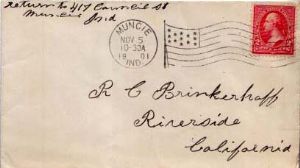 Return to 417 Council St
Muncie Ind
MUNCIE
NOV 5
10-30A
1901
IND.
R C Brinkerhoff
Riverside
California